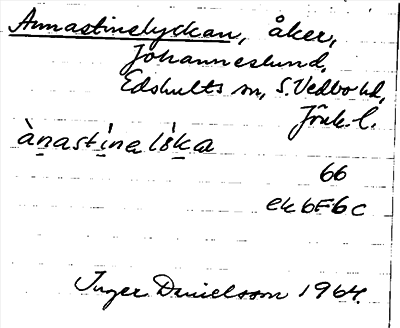 Annastinelyckan, åker,
Johanneslund,
Edshults sn, S. Vedbo hd,
Jönk. l.
ànastinalỳka
66
ek 6F6c
Inger Danielsson 1964.